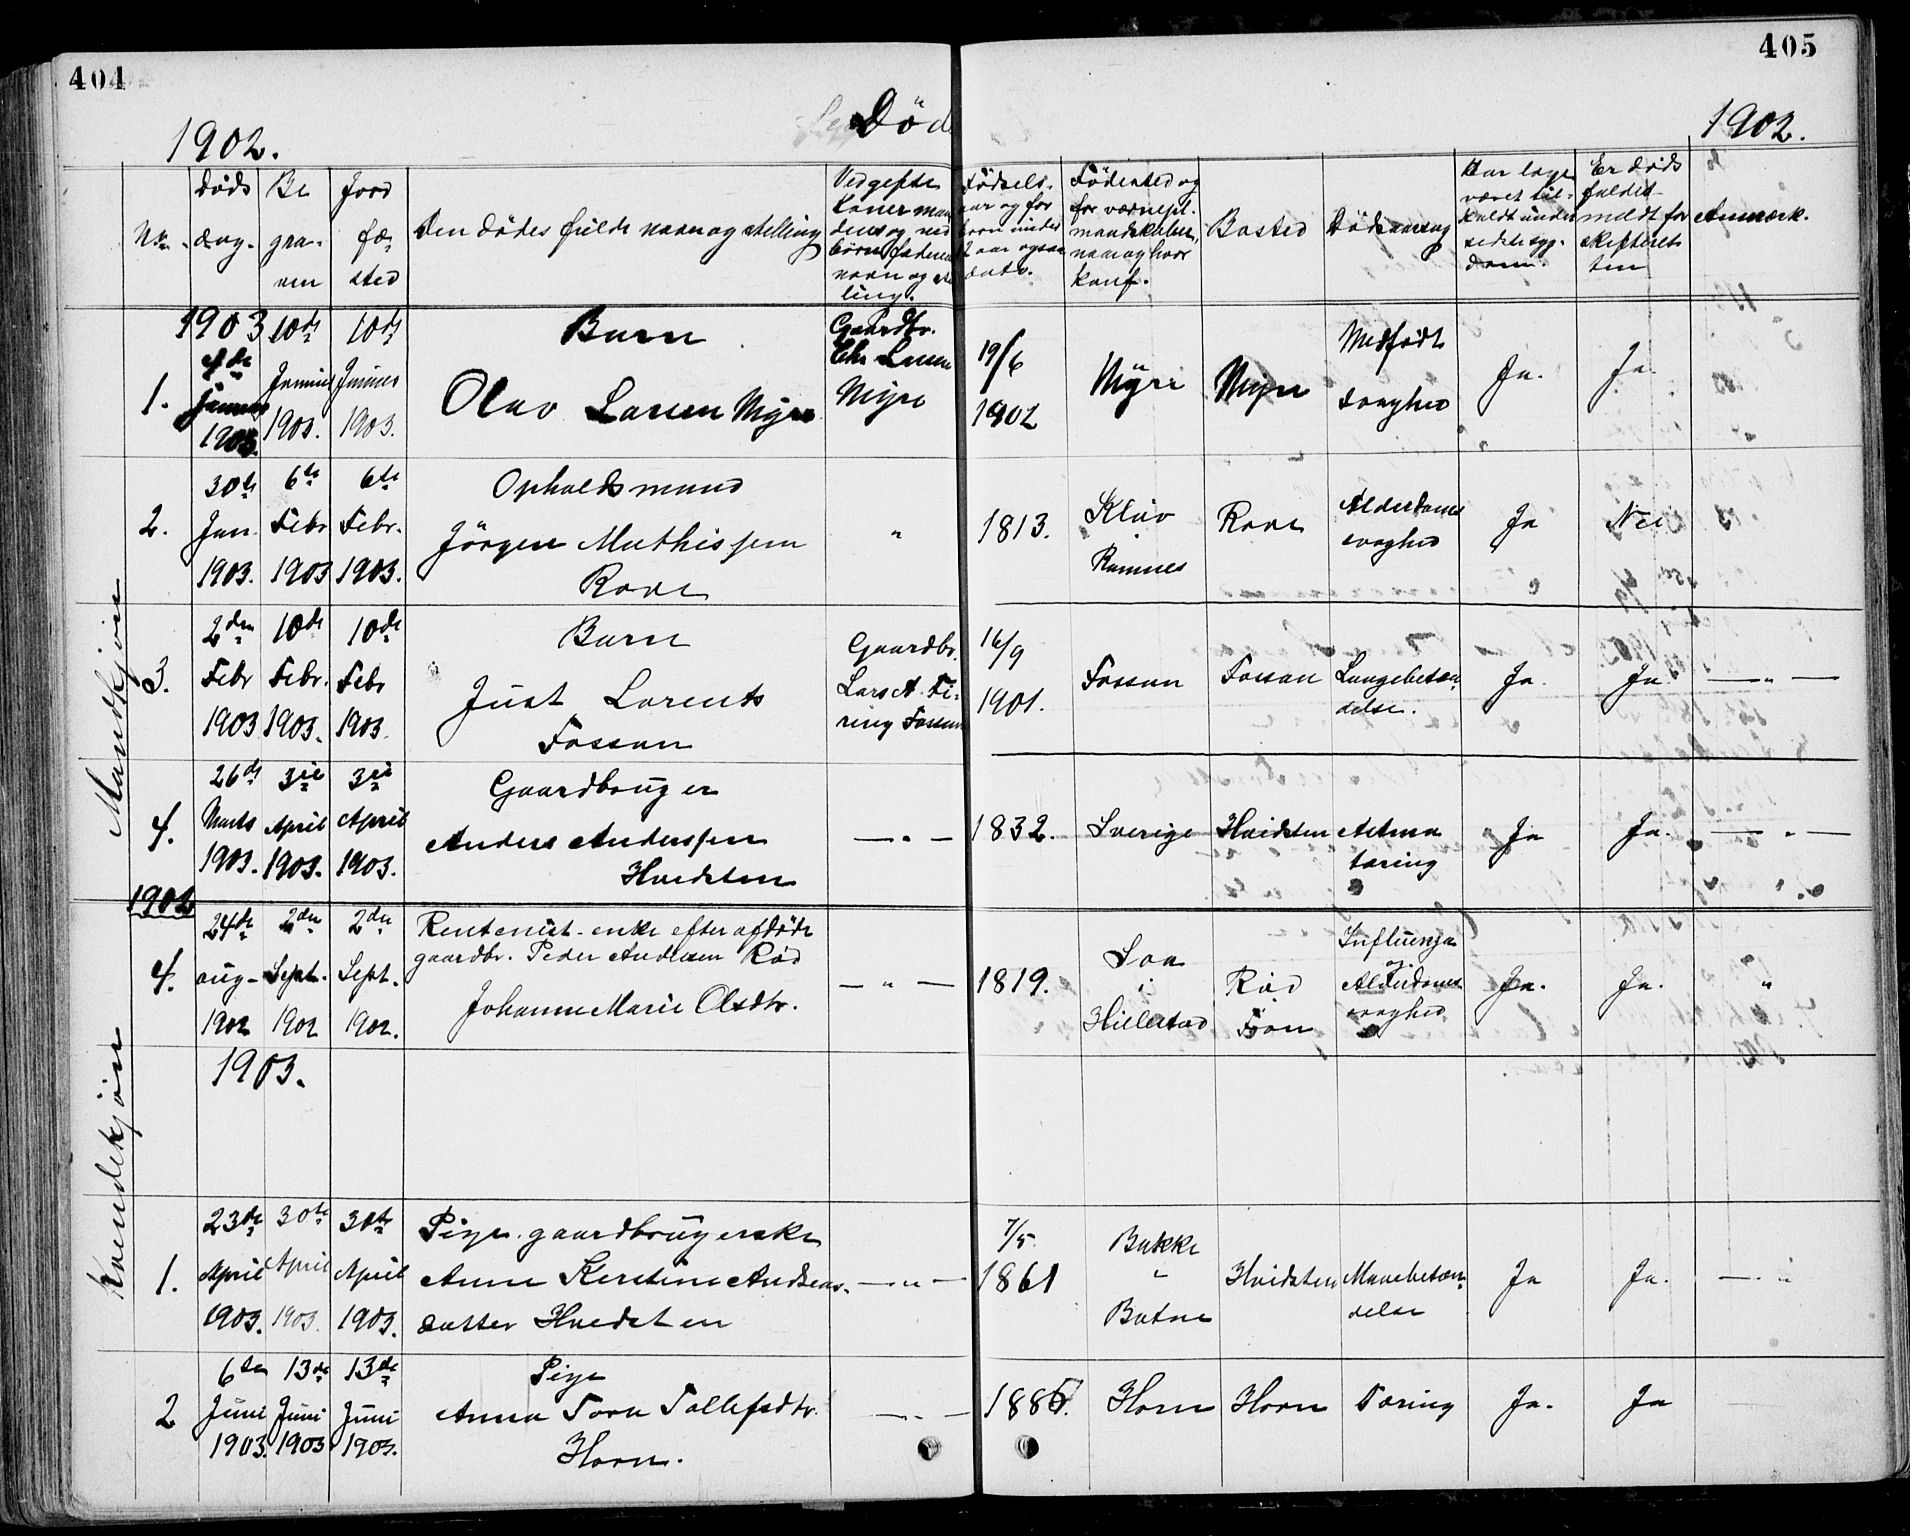 404
405
1902.
Død
1902.
No.
Døds
dag.
Be
gra-
ven
Jord
fæ-
sted
Den dødes fulde navn og stilling
Ved gifte
Koner man
dens og ved
børn faderens
navn og stil
ling.
Fødsels-
aar og for
børn under
2 aar ogsaa
dato.
Fødested og
for værnepl.
mandskaber,
navn og hvor
konf.
Bosted
Dødsaarsag
Har læge
været til-
kaldt under
sidste syg-
dom.
Er døds
faldet
meldt for
skifteret-
ten
Anmærk.
Mandkjøn
1903
1.
4de
Januar
1903.
10de
Januar
1903.
10de
Januar
1903.
Barn
Olav Larsen Myre
Gaardbr.
Chr Larsen
Myre
19/6
1902
Myre
Myre
Medfødt
svaghed
Ja.
Ja
2.
30te
Jan.
1903.
6te
Febr
1903
6te
Febr.
1903.
Opholdsmand
Jörgen Mathissen
Rove
"
1813.
Kløv
Ramnes
Rove
Alderdoms
svaghed
Ja
Nei
3.
2den
Febr
1903
10de
Febr.
1903.
10de
Febr
1903.
Barn
Just Lorents
Fossan
Gaardbr.
Lars A. Fi-
ring Fossan
16/9
1901.
Fossan
Fossan
Lungebetæn
delse.
Ja
Ja
— " —
4.
26de
Marts
1903.
3die
April
1903.
3die
April
1903.
Gaardbruger
Anders Anderssen
Hvidsten
— " —
1832.
Sverige
Hvidsten
Astma
tæring
Ja
Ja.
— " —
Kvindekjøn
1902
4.
24de
aug-
1902
2den
Sept.
1902
2den
Sept.
1902.
Rentenist- enke efter afdøde
gaardbr. Peder Andersen Rød
Johanne Marie Olsdtr.
— " —
1819.
Loa
i
Hillestad
Rød
Føn
Influenza
og
Alderdoms
svaghed
Ja.
Ja.
"
1903.
1.
23de
April
1903.
30te
April
1903.
30te
April
1903.
Pige. gaardbrugerske
Anne Kerstine Anders-
datter Hvidsten
— " —
7/5
1861
Bakke
"
Botne
Hvidsten
Mavebetæn-
delse
Ja
Ja.
— "
2
6te
Juni
1903.
13de
Juni
1903
13de
Juni
1903.
Pige
Anna Tora Tollefsdtr.
Horn.
— " —
1885.
Horn
Horn
Tæring
Ja.
Ja